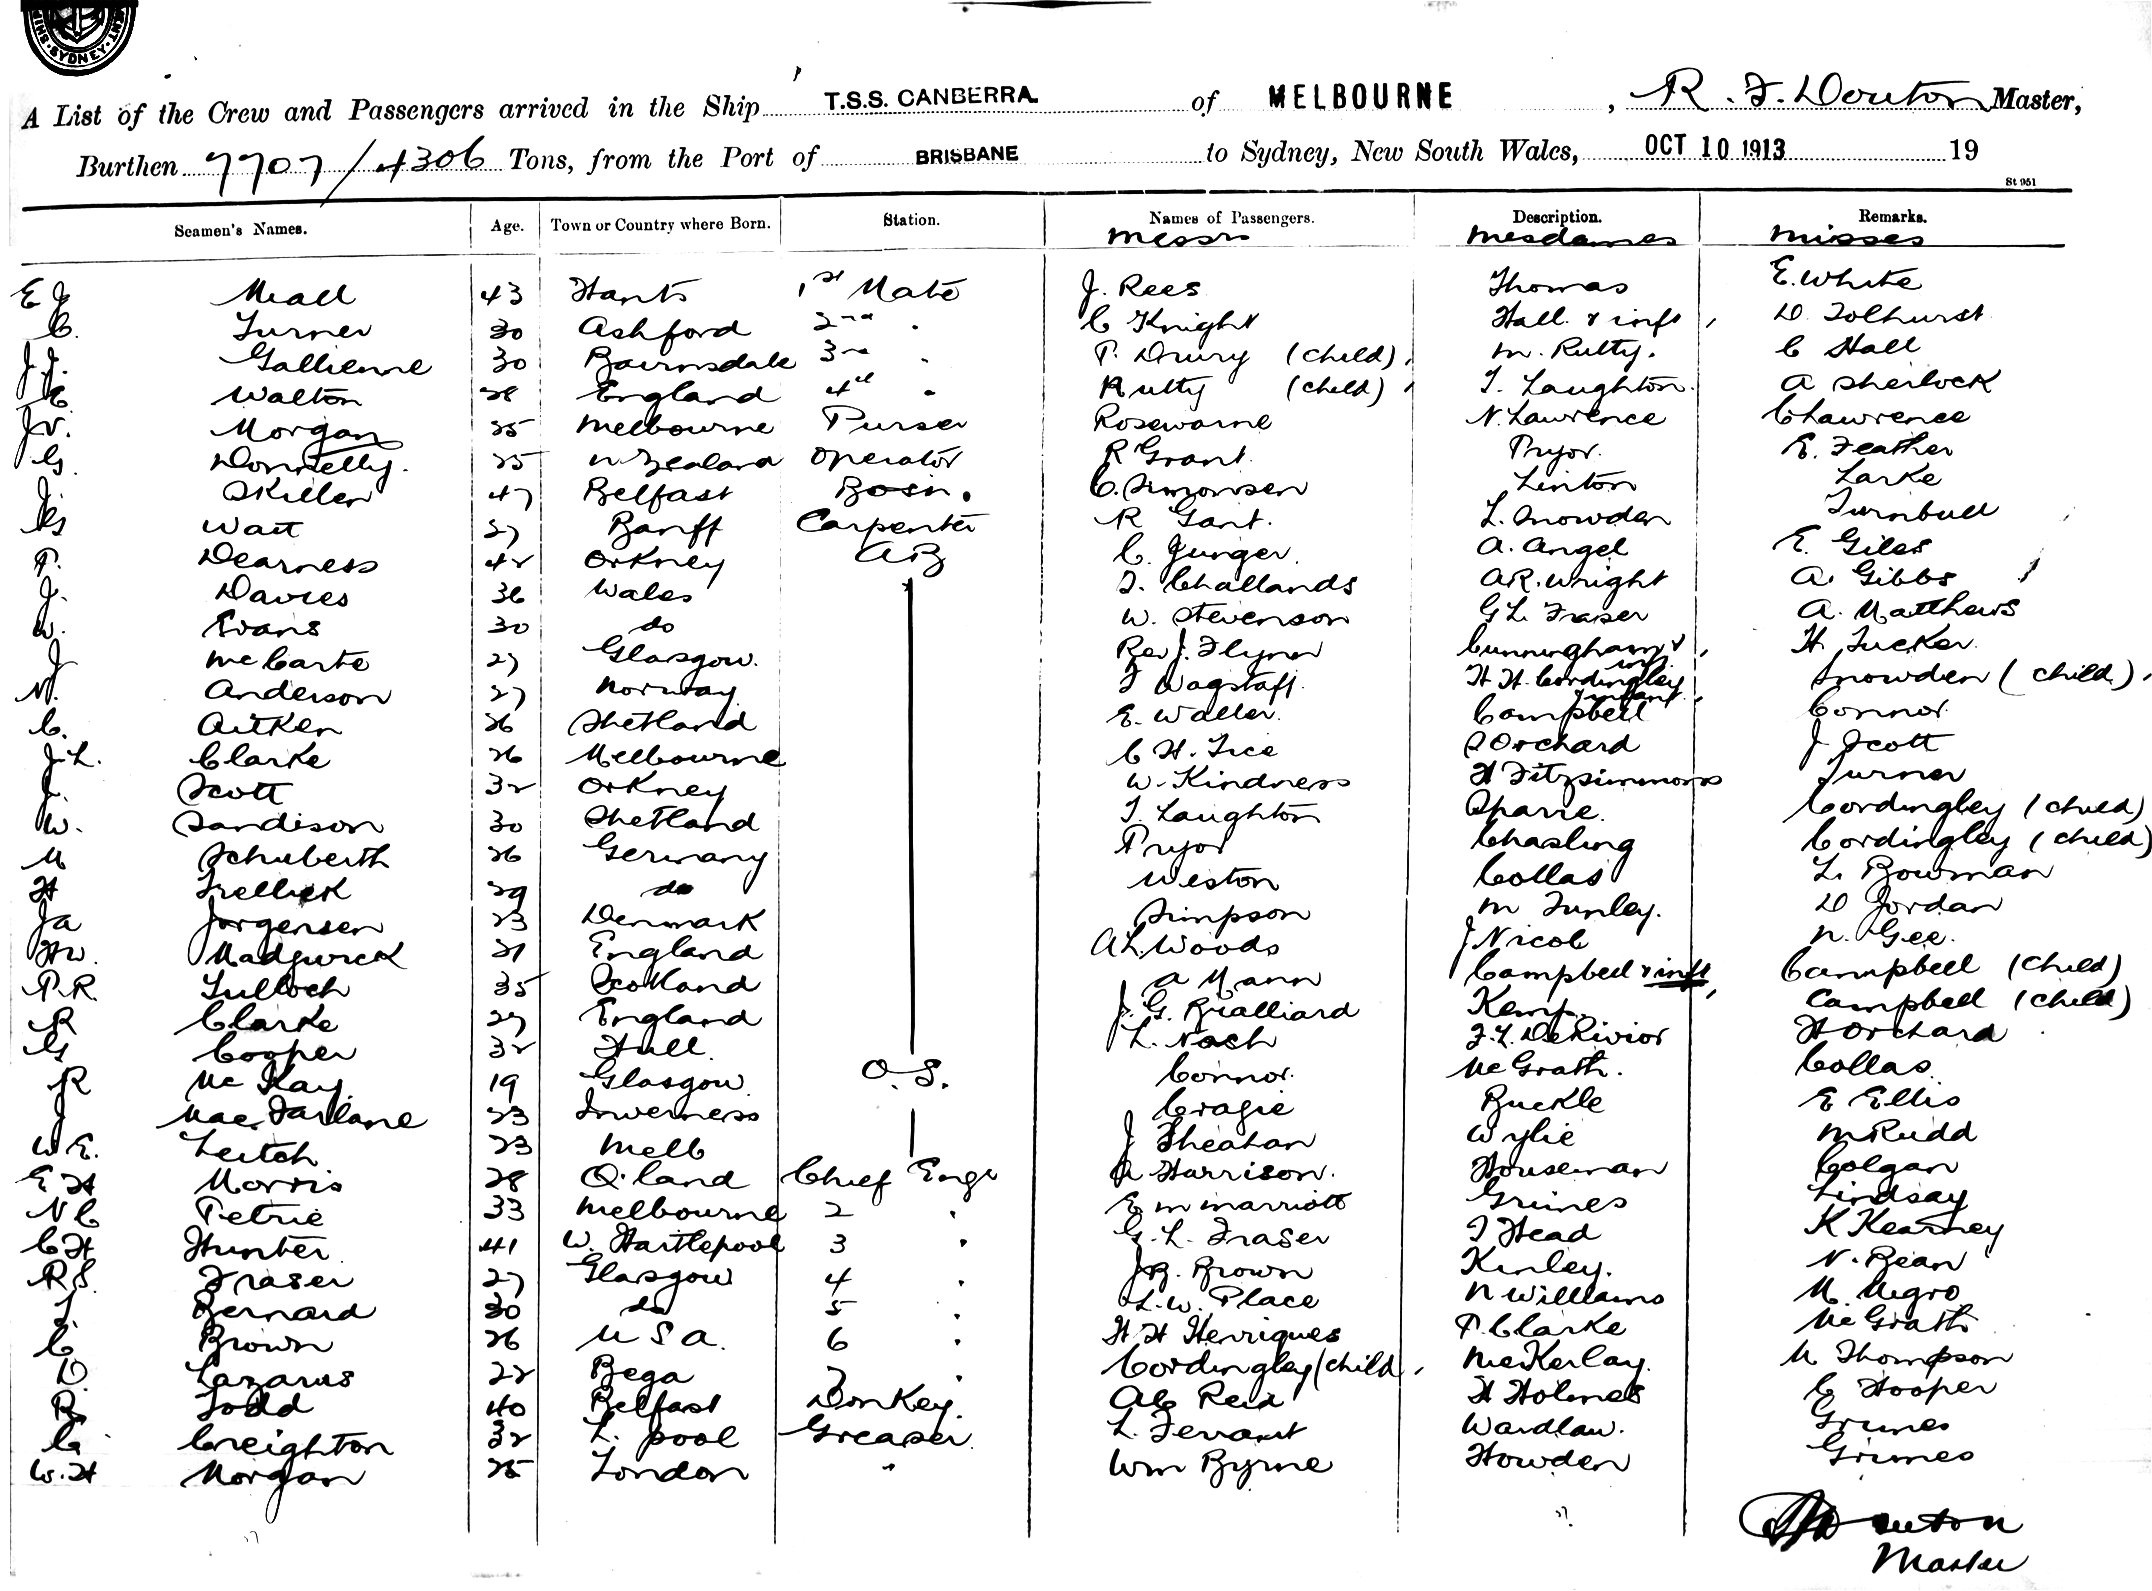 SYDNEY
A List of the Crew and Passengers arrived in the Ship T.S.S. CANBERRA of MELBOURNE, R. F. Douton Master,
Burthen 7707/4306 Tons, from the Port of BRISBANE to Sydney, New South Wales, OCT 10 1913 19
St 951
Seamen's Names. Age. Town or Country where Born. Station. Names of Passengers. Description. Remarks.
Messrs Mesdames Misses
E J Meall 43 Hants 1st Mate J. Rees Thomas E. White
C. Turner 30 Ashford 2nd " C Knight Hall & inft D Tolhurst
J.J. Gallienne 30 Bairnsdale 3rd " P. Drury (child) M. Rutty. C Hall
E Walton 28 England 4th " Rutty (child) T. Laughton. A Sherlock
J.V. Morgan 25 Melbourne Purser Rosewarne N. Lawrence C Lawrence
G. Donnelly. 25 N. Zealand Operator R Grant. Pryor. E. Feather
J. Skillen 47 Belfast Bosn. C. Simonsen Linton Larke
Js Watt 27 Banff Carpenter R Gant. L. Snowden Turnbull
P. Dearness 42 Orkney AB C. Junger. A. Angel E. Giles
J. Davies 36 Wales T. Challands A.R. Wright A. Gibbs
W. Evans 30 do W. Stevenson G L Fraser A. Matthews
J McCarte 27 Glasgow. Rev J. Flynn Cunningham & inft H Tucker.
N. Anderson 27 Norway F Wagstaff. H H Cordingley Infant Snowden (child)
C. Aitken 26 Shetland E. Waller. Campbell Connor
J.L. Clarke 26 Melbourne C H. Tice S Orchard J Scott
J. Scott 32 Orkney W. Kindness H Fitzsimmons Turner
W. Sandison 30 Shetland T. Laughton Sparre. Cordingley (child)
M Schuberth 26 Germany Pryor Chasling Cordingley (child)
H Trellick 29 do Weston Collas L. Bowman
Ja Jorgensen 23 Denmark Simpson M Tunley. D Jordan
H.W. Madgwick 21 England A L. Woods J Nicol N. Gee.
P.R. Tulloch 35 Scotland A Mann Campbell & inft Campbell (child)
R Clarke 27 England J. G. Brailliard Kemp. Campbell (child)
G Cooper 32 Hull. L. Nash F. L. DeRivior H Orchard
R McKay 19 Glasgow O.S. Connor. McGrath. Collas
J MacFarlane 23 Inverness Cragie Buckle E Ellis
W E. Leitch 23 Melb J Sheahan Wylie M Rudd
E H Morris 28 Q.land Chief Engr A Harrison. Houseman Colgan
N C Petrie 33 Melbourne 2 " E M Marriott Grimes Lindsay
C H Hunter 41 W. Hartlepool 3 " G. L. Fraser T Head K Kearney
R S. Fraser 27 Glasgow 4 " J.B. Brown Kinley. N. Bean
J Bernard 30 do 5 " L.W. Place N Williams M. Negro
C Brown 26 U S A. 6 " H H Henriques P. Clarke McGrath
D. Lazarus 22 Bega 7 " Cordingley (child) McKerlay. M Thompson
R. Todd 40 Belfast Donkey. A C Reid H Holmes E Hooper
G Creighton 32 L. pool Greaser L. Ferrant Wardlaw. Grimes
W.H Morgan 25 London " Wm Byrne Howden Grimes
Douton
Master